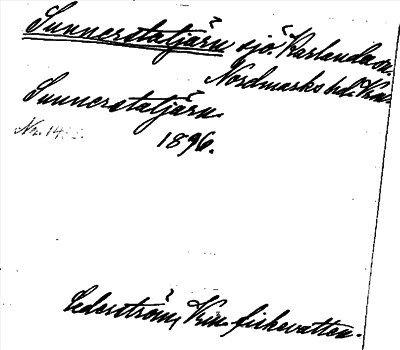 Sunnerstatjärn sjö. Karlanda sn.
Nordmarks hd. Vrm.
Sunnerstatjärn.
Nr. 14
1896.
Cederström, Vrm. fiskevatten.